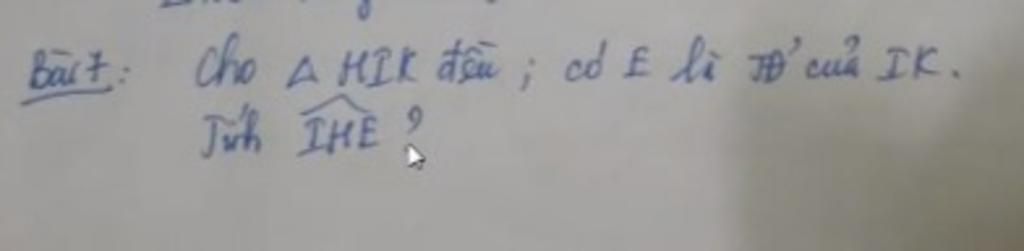 Bài 7: Cho Δ HIK đều ; có E là TĐ' của IK.
Tính IHE ?